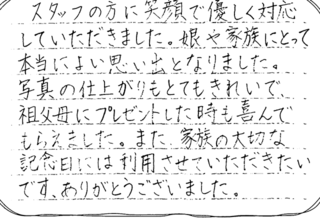 スタッフの方に笑顔で優しく対応
していただきました。娘や家族にとって
本当によい思い出となりました。
写真の仕上がりもとてもきれいで、
祖父母にプレゼントした時も喜んで
もらえました。また家族の大切な
記念日には利用させていただきたい
です。ありがとうございました。